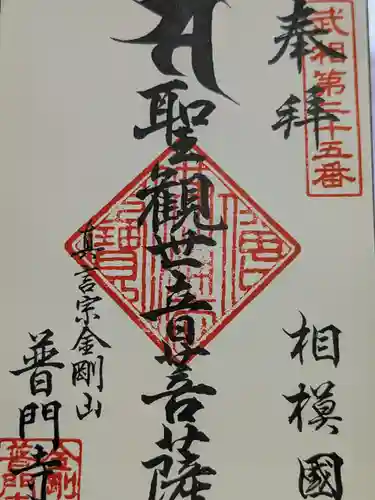 奉拝
武相第二十五番
相模國
聖觀世音菩薩
真言宗金剛山
普門寺
金剛
普門